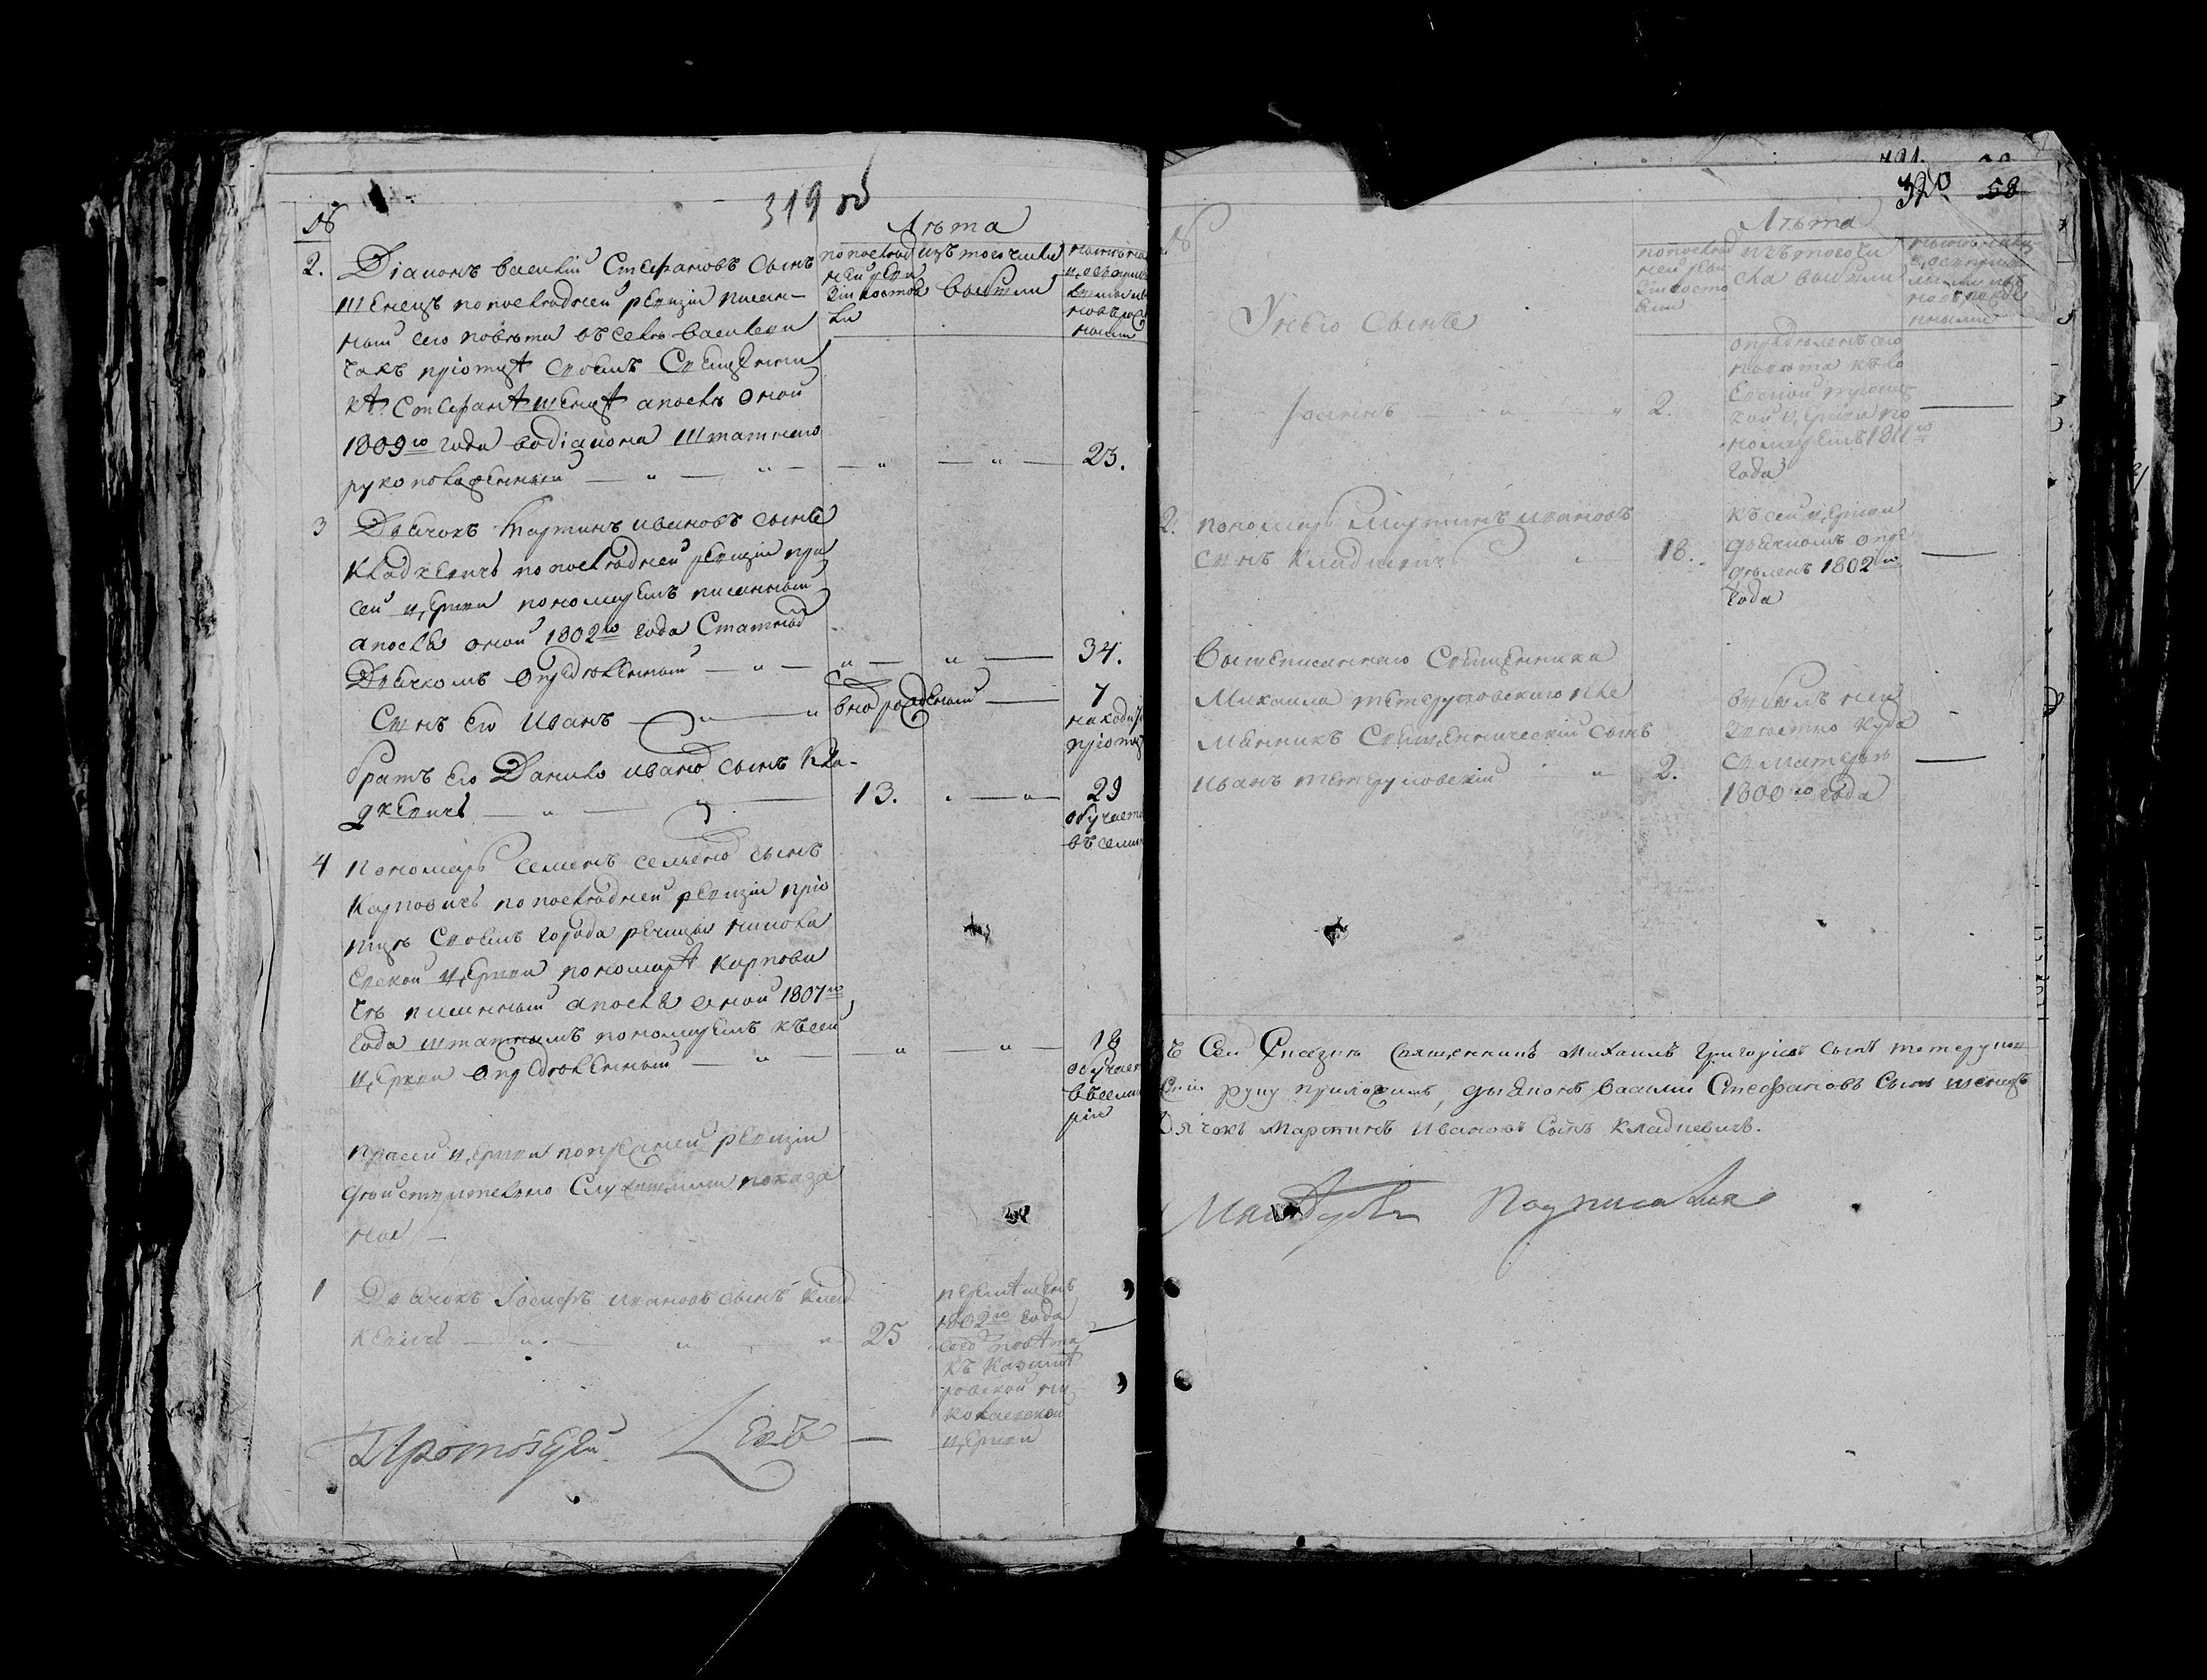 319 об
№
Лѣта
2. Діаконъ Василій Стефановъ сынъ
по послѣд
ней реви
зіи состоя
ли
изъ того числа
выбыли
Шенецъ по послѣдней ревизіи писан-
ный сего повѣта въ селѣ Василеви
чахъ при отцѣ своемъ Священни
кѣ Стефанѣ Шенцѣ а послѣ оной
1809го года во діакона Штатнаго
рукоположенный — „ — „ — „ — „ — 23.
3 Дьячокъ Мартинъ Ивановъ сынъ
Кладкевичъ по послѣдней ревизіи при
сей церкви пономаремъ писанный
а послѣ оной 1802го года Статнымъ
Дьячкомъ опредѣленный — „ — „ — „ — 34.
Сынъ его Иванъ — „ — „ вновѣрожденный — 7
находи
при отцѣ
братъ его Данило Ивановъ сынъ Кла-
дкевичъ — „ — „ — 13. „ — „ 29
обучает
въ семи
4 Пономарь Семенъ Семеновъ сынъ
Карповичъ по послѣдней ревизіи при о
тцѣ своемъ города рѣчицы Никола
евской церкви пономарѣ Карпови
чѣ писанный а послѣ оной 1807го
года штатнымъ пономаремъ къ сей
церкви опредѣленный — „ — „ — „ — 18
обучает
въ семи
ріи
При сей церкви по прежней ревизіи
дѣйствительно Служащими показа
ны —
1 Дьячокъ Іосифъ Ивановъ сынъ Клад
кевичъ — „ — „ 25
перемѣщенъ
1802го года
сего повѣта
къ
ровской ни
колаевской
церкви
Протоіерей
320 58
№
Лѣта
по послѣд
ней реви
зіи состо
яли
изъ того чи
сла выбыли
У него сынъ
Іоаннъ — „ „ 2.
опредѣленъ сего
повѣта къ
троиц
кой церкви по
номаремъ 1811го
года
2. пономарь Мартинъ Ивановъ
сынъ Кладкевичъ „ 18.
къ сей церкви
дьячкомъ опре
дѣленъ 1802го
года
Вышеписаннаго Священника
Михаила Тетеруковскаго пле
мянникъ Священническій сынъ
Иванъ Тетеруковскій „ 2.
выбылъ неи
звѣстно куда
съ матерью
1800го года
Сей Сказкѣ Священникъ Михаилъ Григоріевъ сынъ Тетеруков
скій руку приложилъ, дьяконъ Василій Стефановъ сынъ Шенецъ
Дячокъ Мартинъ Ивановъ сынъ Кладкевичъ.